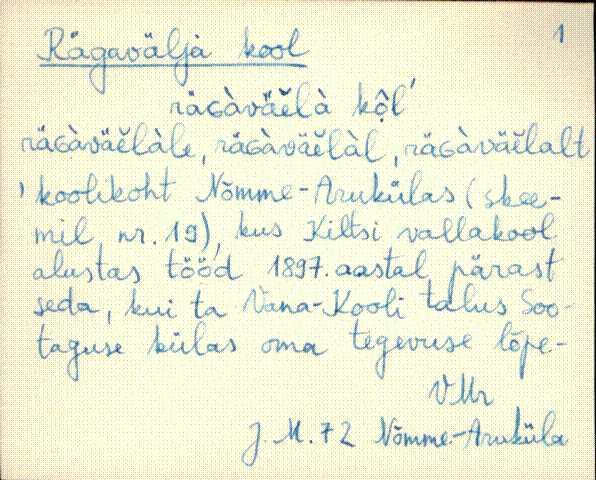 1
Rägavälja kool
räGàväĕlà kô̬l'
räGàväĕlàle, räGàväĕlàl, räGàväĕlalt
, koolikoht Nõmme-Arukülas (skee-
mil nr. 19), kus Kiltsi vallakool
alustas tööd 1897. aastal pärast
seda, kui ta Vana-Kooli talus Soo-
taguse külas oma tegevuse lõpe-
VMr
J. M. 72 Nõmme-Aruküla